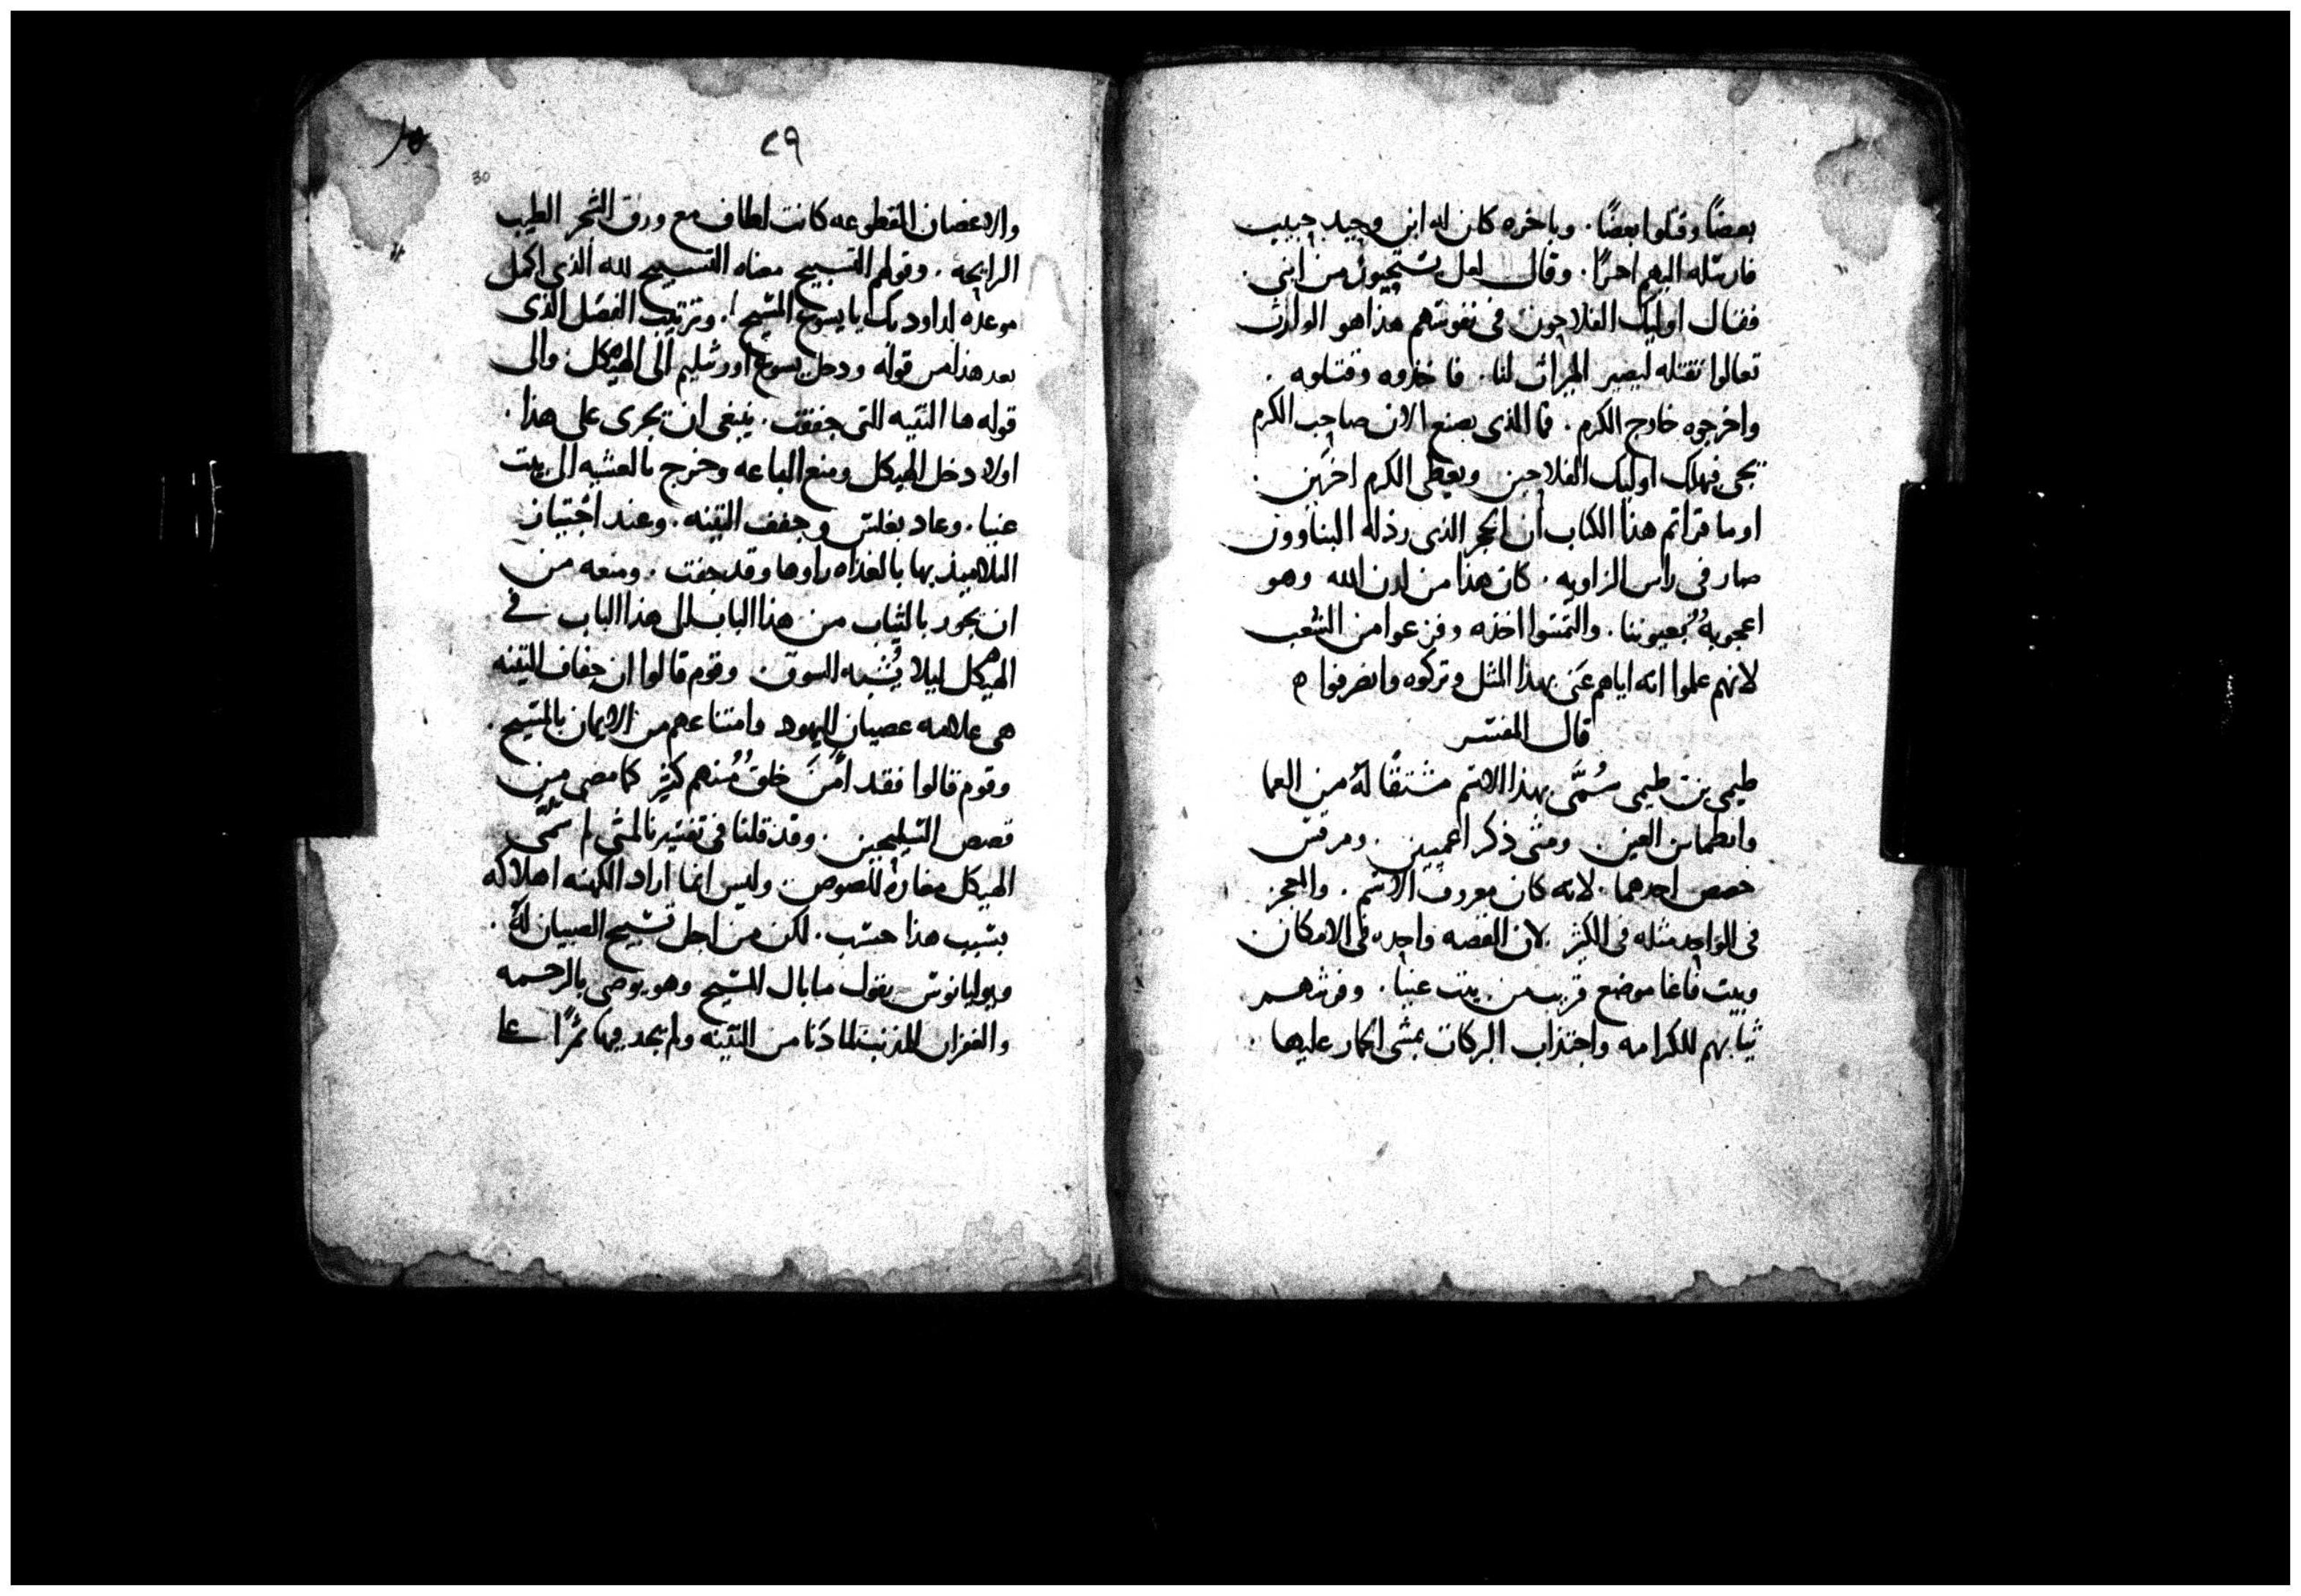 بعضًا وقتلوا بعضًا. وباخره كان له ابن وحيد حبيب
فارسله اليهم اخرًا. وقال لعل يستحيون من ابني.
فقال اوليك الفلاحون في نفوسهم هذا هو الوارث
تعالوا نقتله ليصير الميراث لنا. فاخذوه وقتلوه.
واخرجوه خارج الكرم. فما الذي يصنع الان صاحب الكرم
يجي فيهلك اوليك الفلاحين ويعطى الكرم اخرين.
او ما قراتم هذا الكتاب ان الحجر الذي رذله البناوون
صار في راس الزاويه. كان هذا من لدن الله وهو
اعجوبهٌ بعيوننا. والتمسوا اخذه وفزعوا من الشعب
لانهم علموا انه اياهم عَنى بهذا المثل وتركوه وانصرفوا ه
قال المفسر
طيمى بن طيمى سُمَّى بهذا الاسم مشتقًا لهُ من العما
وانطماس العين. ومتى ذكر اعميين. ومرقس
خصص احدهما. لانه كان معروف الاسم. والمعجز
في الواحد مثله في الكثر لان القصه واحده في الامكان
وبيت فاغا موضع قريب من بيت عنيا. وفرشهم
ثيابهم للكرامه واجتذاب البركات بمشى الحمار عليها.
٢٩
30
والاغصان المقطوعه كانت لطاف مع ورق الشجر الطيب
الرايحه. وقولهم التسبيح معناه التسبيح لله الذي اكمل
موعده لداود بك يا يسوع المسيح. وترتيب الفصل الذي
بعد هذا من قوله ودخل يسوع اورشليم الى الهيكل والى
قوله ها التينه التي جففت. ينبغى ان يجرى على هذا.
اولا دخل الهيكل ومنع الباعه وخرج بالعشيه الى بيت
عنيا. وعاد بغلس وجفف التينه. وعند اجتياز
التلاميذ بها بالغداه راوها وقد جفت. ومنعه من
ان يجوز بالثياب من هذا الباب الى هذا الباب في
الهيكل ليلا يُشبه السوق وقوم قالوا ان جفاف التينه
هي علامه عصيان اليهود وامتناعهم من الايمان بالمسيح.
وقوم قالوا فقد امَنَ خلقٌ مُنهم كثير كما مضى من
قصص السليحين. وقد قلنا في تفسيرنا لمتى لم سمَّى
الهيكل مغارة للصوص وليس انما اراد الكهنه اهلاكه
بسبب هذا حسب. لكن من اجل تسبيح الصبيان لهُ.
ويوليانوس يقول ما بال المسيح وهو يوصى بالرحمه
والغفران للمذنب لما دَنا من التينه ولم يجد فيها ثمرًا